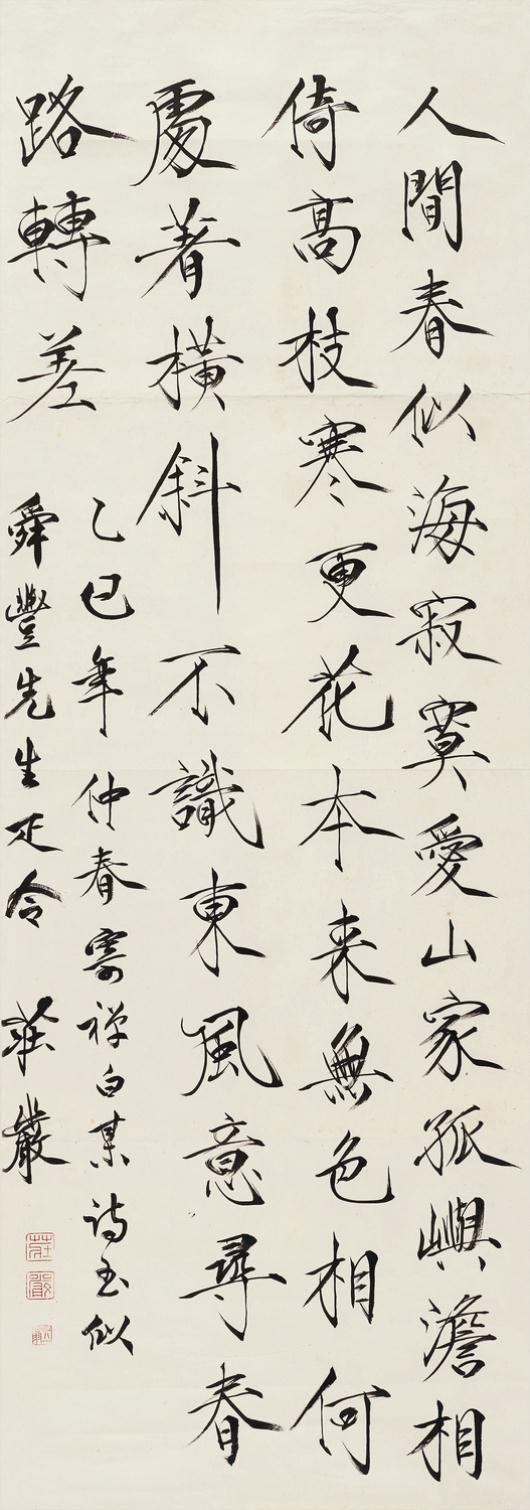 人間春似海寂寞愛山家孤嶼澹相
倚高枝寒更花本来無色相何
處著橫斜不識東風意尋春
路轉差
乙巳年仲春寄禅白某詩書似
舜豐先生疋令 莊嚴
莊
嚴